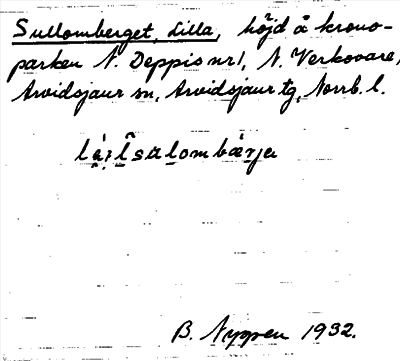 Sullomberget, Lilla, höjd å krono-
parken N. Deppis nr 1, N. Verkovare,
Arvidsjaur sn, Arvidsjaur tg, Norrb. l.
B. Nyppen 1932.